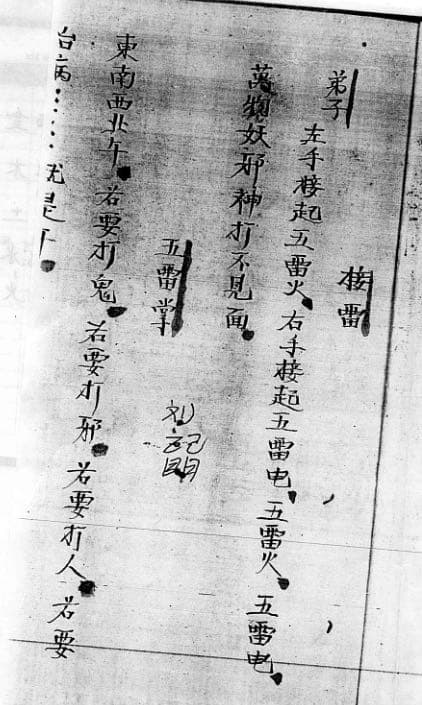 接雷
弟子
左手接起五雷火。右手接起五雷电、五雷火。五雷电、
萬物妖邪神打不見面。
五雷掌
刘
東南西北午。若要打鬼。若要打邪。若要打人。若要
治病……就是午。